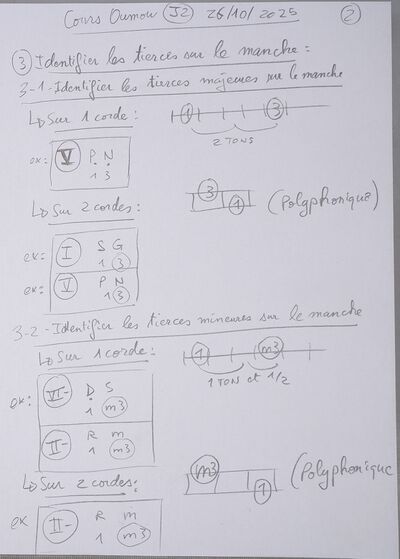 Cours Oumou J2 26/10/2025 2
3 Identifier les tierces sur le manche:
3-1-Identifier les tierces majeures sur le manche
↳ Sur 1 corde: 1 3
2 TONS
ex: V P N
1 3
↳ Sur 2 cordes: 3 1 (Polyphonique)
ex: I S G
1 3
ex: V P N
1 3
3-2-Identifier les tierces mineures sur le manche
↳ Sur 1 corde: 1 m3
1 TON et 1/2
ex: VI- D S
1 m3
II- R m
1 m3
↳ Sur 2 cordes: m3 1 (Polyphonique
ex II- R m
1 m3